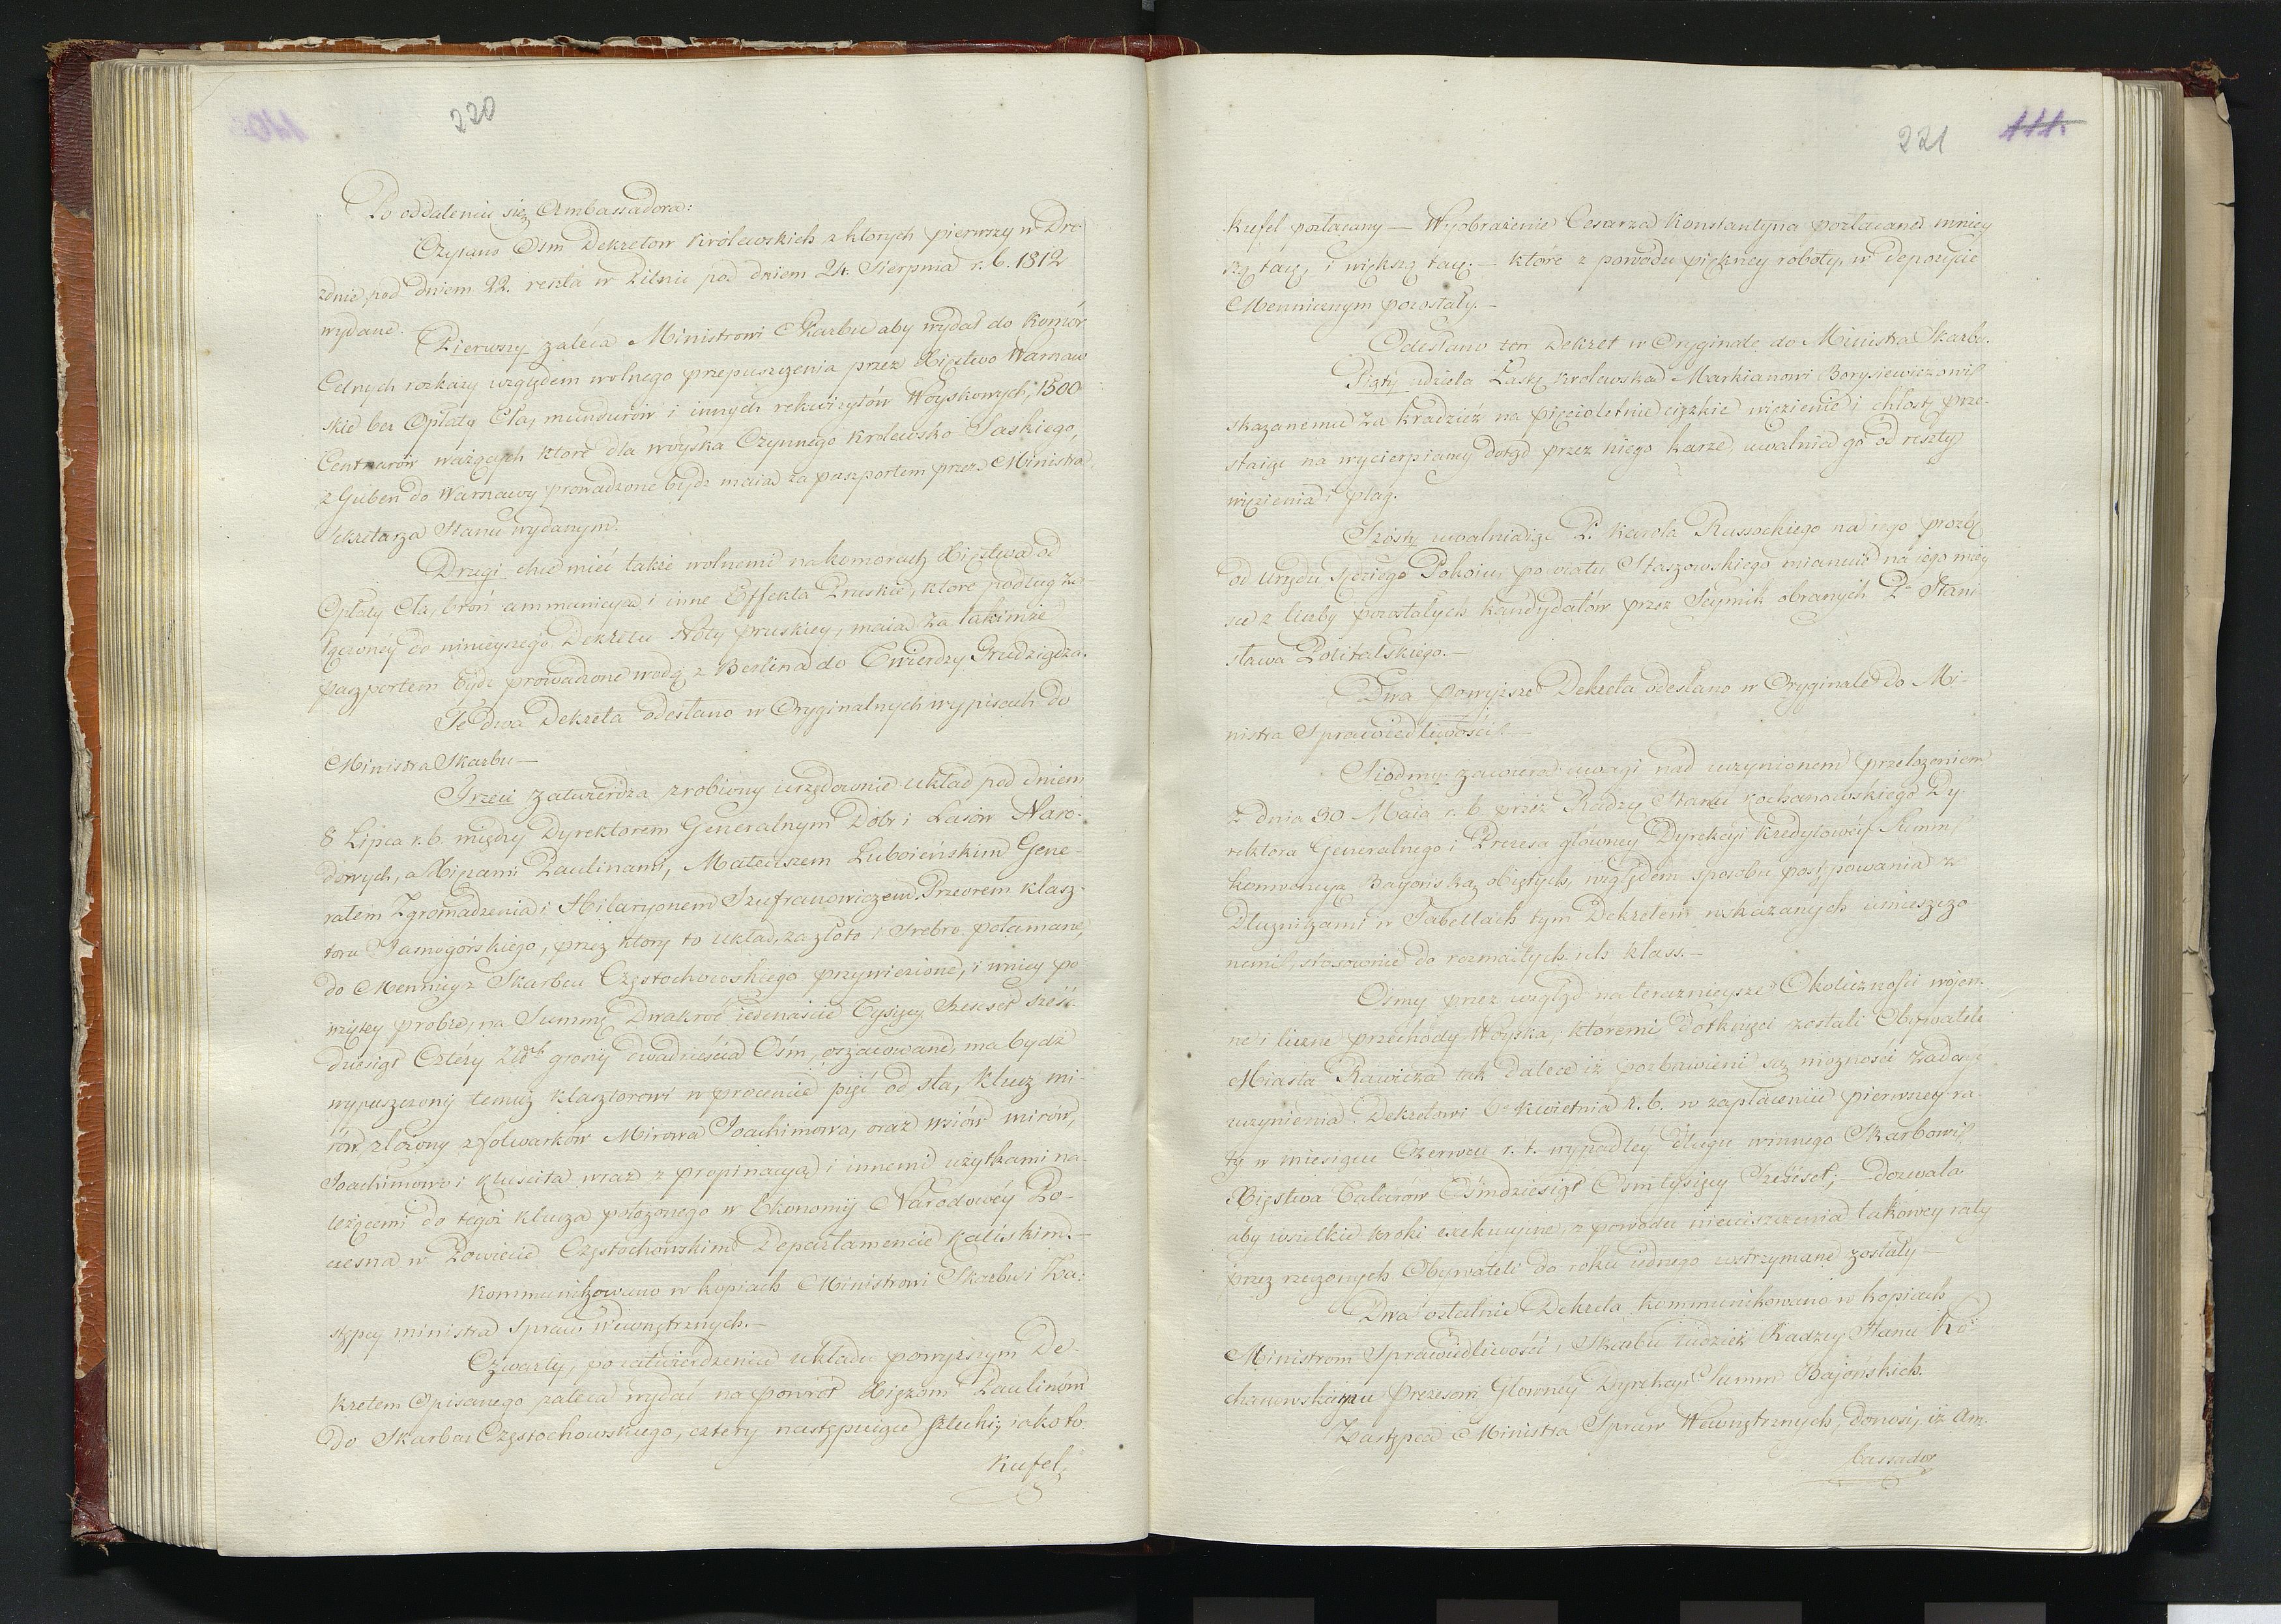 220
Po oddaleniu się Ambassadora:
Czytano Ośm Dekretow Królewskich z których pierwszy w Dre-
znie pod dniem 22. reszta w Pilnic pod dniem 24. Sierpnia r. b. 1812
wydane.
Pierwszy zaleca Ministrowi Skarbu aby wydał do Komór
Celnych rozkazy względem wolnego przepuszczenia przez Xięstwo Warszaw
skie bez Opłaty Cła, mundurów i innych rekwizytów Woyskowych, 1500
Centnarów ważących które dla woyska Czynnego Królewsko-Saskiego,
z Guben do Warszawy prowadzone bydz maią za paszportem przez Ministra
Sekretarza Stanu wydanym.
Drugi chce mieć także wolnemi na komorach Xięstwa od
Opłaty Cła, broń ammunicyą i inne Effekta Pruskie, które podług za-
łączoney do ninieyszego Dekretu Noty pruskiey, maią za takimże
paszportem bydz prowadzone wodą z Berlina do Twierdzy Grudziądza.
Te dwa Dekreta odesłano w Oryginalnych wypisach do
Ministra Skarbu —
Trzeci zatwierdza zrobiony urzędownie układ pod dniem
8 Lipca r. b. między Dyrektorem Generalnym Dóbr i Lasów Naro-
dowych, a Xiężami Paulinami, Mateuszem Łuboieńskim Gene-
ralem Zgromadzenia i Hilaryonem Szufranowiczem Przeorem klasz-
toru Jasnogórskiego, przez który to układ, za złoto i srebro połamane,
do Mennicy z Skarbcu Częstochowskiego przywiezione, i mniey po-
wziętey probie, na Summę Dwakroć iedenaście Tysięcy Sześćset sześć-
dziesiąt Cztéry Złłch groszy dwadzieścia Ośm, oszacowane, ma bydz
wypuszczony temuż klasztorowi w procencie pięć od sta, klucz Mi-
rów, złożony z folwarków Mirowa Joachimowa, oraz wsiów Mirów,
Joachimowo i Kuśmita wraz z propinacyą i innemi użytkami na-
leżącemi do tegoż klucza położonego w Ekonomij Narodowéy Po-
czesna w Powiecie Częstochowskim Departamencie Kaliskim. —
Kommunikowano w kopiach Ministrowi Skarbu i Za-
stępcy Ministra Spraw Wewnętrznych. —
Czwarty, po zatwierdzeniu układu powyższym De-
kretem Opisanego zaleca wydać na powrot Xiężom Paulinóm
do Skarbca Częstochowskiego, cztery następuiące sztuki, iako to
Kufel
221
111.
Kufel pozłacany — Wyobrażenie Cesarza Konstantyna pozłacane mniey
szą tacę, i większą tacę. — które z powodu piękney roboty, w depozycie
Mennicznym pozostały. —
Odesłano ten Dekret w Oryginale do Ministra Skarbu.
Piąty udziela Łaskę Królewską Markianowi Borysiewiczowi
skazanemu za kradzież na pięcioletnie ciężkie więzienie i chłostę prze-
staiąc na wycierpianey dotąd przez niego karze, uwalnia go od reszty
więzienia i plag.
Szósty uwalniaiąc P. Karola Russockiego na iego prozbę
od Urzędu Sędziego Pokoiu powiatu Staszowskiego mianuie na iego miey
sce z liczby pozostałych kandydatów przez Seymik obranych Pa Stani-
sława Politalskiego. —
Dwa powyższe Dekreta odesłano w Oryginale do Mi-
nistra Sprawiedliwości. —
Siodmy zawiera uwagi nad uczynionem przełożeniem
z dnia 30 Maia r. b. przez Radzcę Stanu Kochanowskiego Dy-
rektora Generalnego i Prezesa głowney Dyrekcyi kredytowéy Summ
konwencyą Bayońską obiętych, względem sposobu postępowania z
Dłużnikami w Tabellach tym Dekretem wskazanych umieszczo-
nemi, stosownie do rozmaitych ich klass. —
Ósmy przez wzgląd na teraznieysze Okoliczności wojen-
ne i liczne przechody Woyska, któremi dotknięci zostali Obywatele
Miasta Rawicza tak dalece iż pozbawieni są możności zadosyć
uczynienia Dekretowi 6o kwietnia r. b. w zapłaceniu pierwszey ra-
ty w miesiącu Czerwcu r. t. wypadłey długu winnego Skarbowi
Xięstwa Talarów Ośmdziesiąt Ośm tysięcy Sześćset; — dozwala
aby wszelkie kroki exekucyine, z powodu nieuiszczenia takowey raty
przez rzeczonych Obywateli do roku iednego wstrzymane zostały —
Dwa ostatnie Dekreta kommunikowano w kopiach
Ministrom Sprawiedliwości i Skarbu tudzież Radzcy Stanu Ko-
chanowskiemu Prezesowi Głownéy Dyrekcyi Summ Bajońskich.
Zastępca Ministra Spraw Wewnętrznych, donosi, iż Am-
bassador